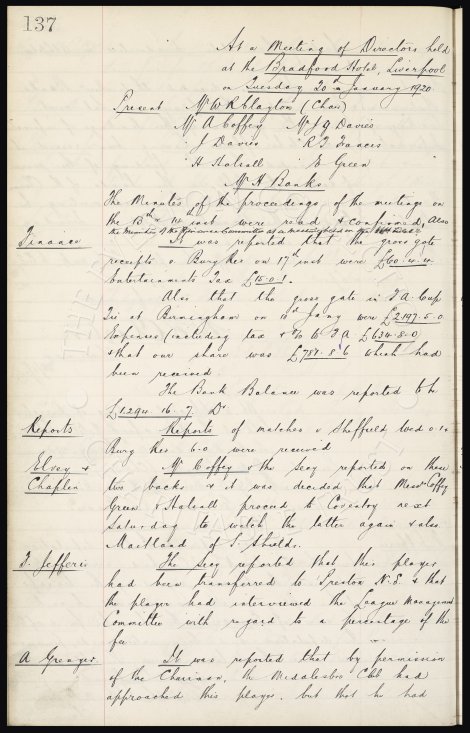 137
At a Meeting of Directors held
at the Bradford Hotel, Liverpool
on Tuesday 20th January 1920.
Present Mr W R Clayton (Chair)
Mr A Coffey Mr J G Davies
" J Davies " R T Frances
" H Halsall " E Green
Mr H Banks
The Minutes of the proceedings of the meetings on
the 13th & 14th inst were read & confirmed, Also
the Minutes of the Finance Committee at a meeting held on the
Finance It was reported that the gross gate
receipts v Bury Res on 17th inst were £60. 4. 4
Entertainments Tax £15. 0. 1.
Also that the gross gate in F A Cup
Tie at Birmingham on 10th Jany were £2,197. 5. 0
Expenses (including tax & % to F A £634. 8. 0
& that our share was £781. 8. 6 which had
been received.
The Bank Balance was reported to be
£1,294. 16. 7 Dr
Reports Reports of matches v Sheffield Wed 0-1
Bury Res 6-0 were received
Elvey & Mr Coffey & the Secy reported on these
Chaplin two backs & it was decided that Messrs Coffey
Green & Halsall proceed to Coventry next
Saturday to watch the latter again & also
Maitland of S Shields.
F. Jefferis The Secy reported that this player
had been transferred to Preston N.E. & that
the player had interviewed the League Management
Committee with regard to a percentage of the
fee.
A Grenyer It was reported that by permission
of the Chairman, the Middlesbro Club had
approached this player, but that he had